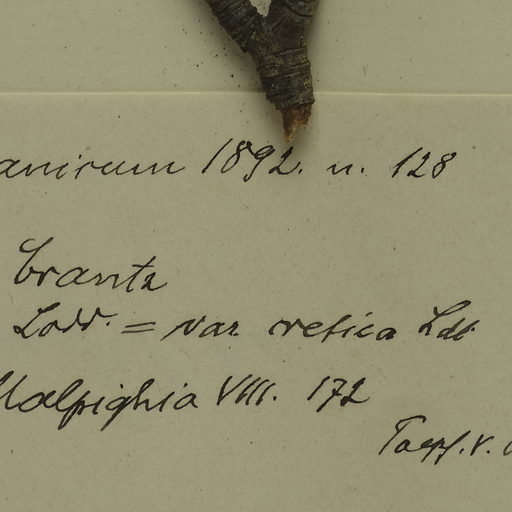 anicum 1892. n. 128
Crantz
Lodd. = var cretica Ldl.
Malpighia VIII. 172
Taepf. v.